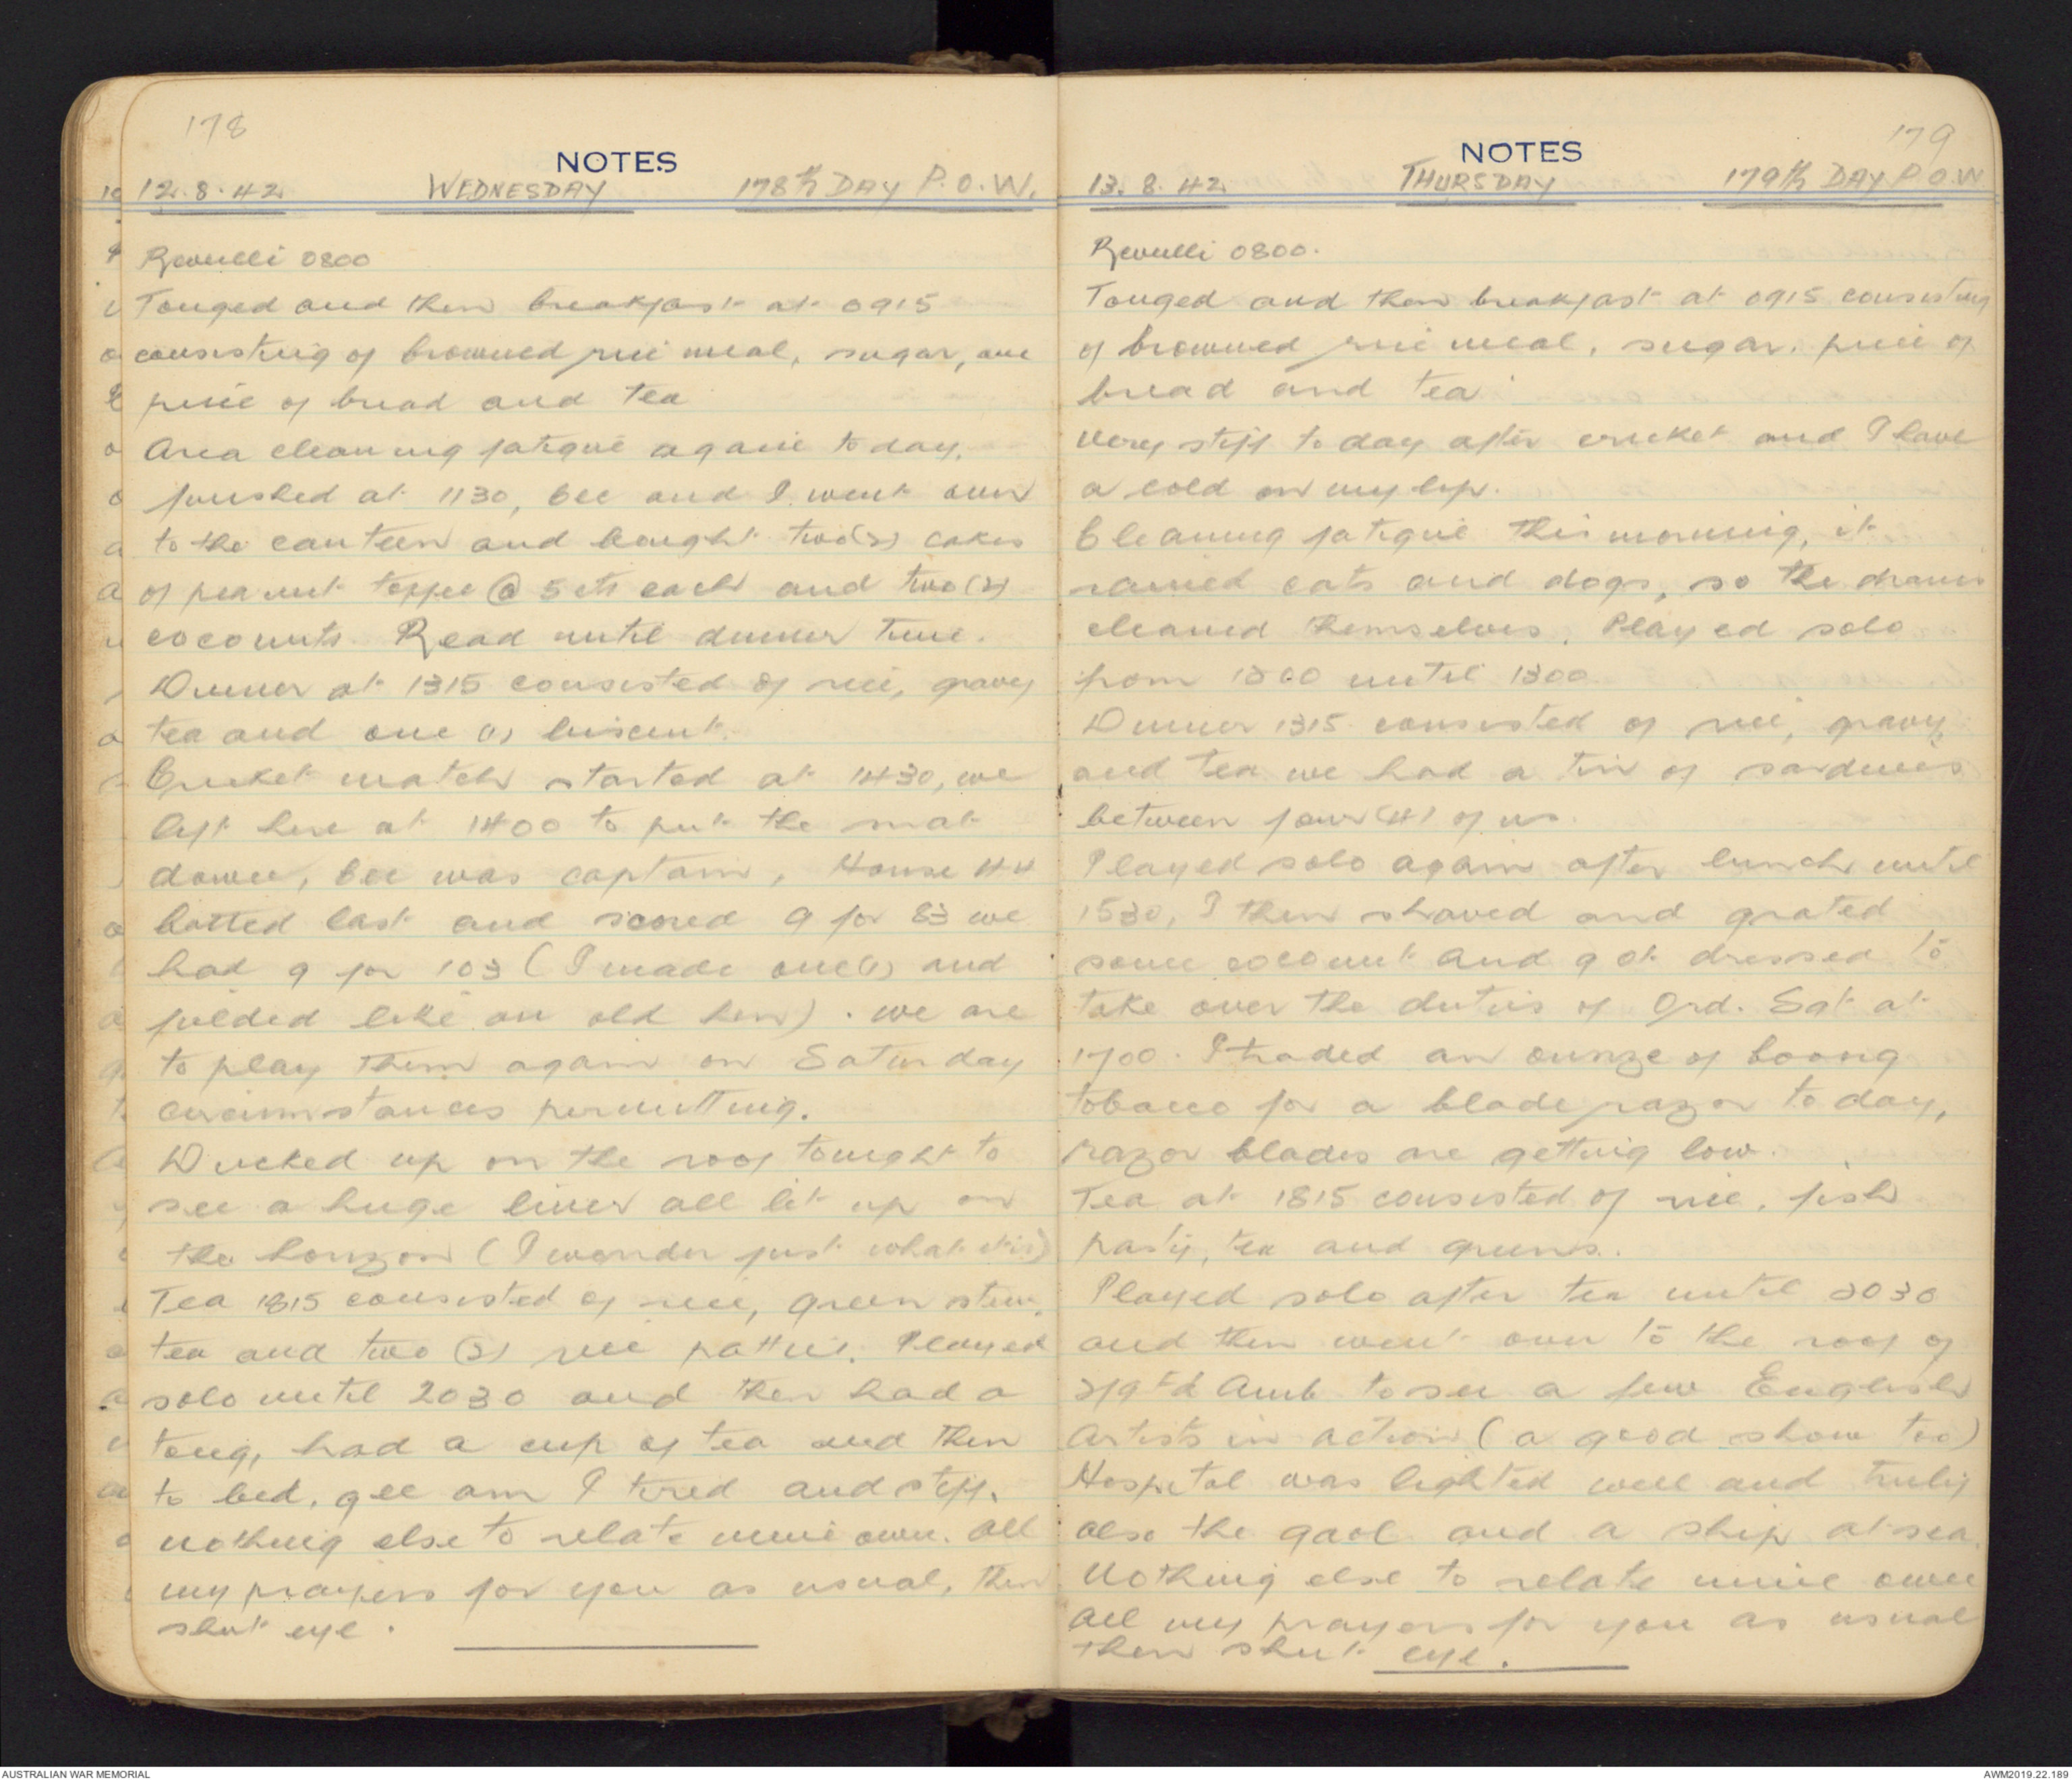 178
NOTES
12.8.42 WEDNESDAY 178th DAY P.O.W.
Revielli 0800
Tonged and then breakfast at 0915
consisting of browned rice meal, sugar, one
piece of bread and tea
Area cleaning fatigue again to day,
finished at 1130, Cec and I went over
to the canteen and bought two(2) cakes
of peanut toffee @ 5 cts each and two (2)
coconuts. Read until dinner time.
Dinner at 1315 consisted of rice, gravy
tea and one (1) biscuit.
Cricket match started at 1430, we
left here at 1400 to put the mat
down, Cec was captain, House 44
batted last and scored 9 for 83 we
had 9 for 103 (I made one(1) and
fielded like an old hen). we are
to play them again on Saturday
circumstances permitting.
Ducked up on the roof tonight to
see a huge liner all lit up on
the horizon (I wonder just what it is)
Tea 1815 consisted of rice, green stew,
tea and two (2) rice patties. Played
solo until 2030 and then had a
tong, had a cup of tea and then
to bed, gee am I tired and stiff.
nothing else to relate mine own. All
my prayers for you as usual, then
shut eye.
179
NOTES
13.8.42 THURSDAY 179th DAY P.O.W
Revielli 0800.
Tonged and then breakfast at 0915 consisting
of browned rice meal, sugar, piece of
bread and tea
very stiff to day after cricket and I have
a cold on my lip.
Cleaning fatigue this morning, it
rained cats and dogs, so the drains
cleaned themselves. Played solo
from until 1300
Dinner 1315 consisted of rice, gravy,
and tea we had a tin of sardines
between four (4) of us.
Played solo again after lunch until
1530, I then shaved and grated
some coconut and got dressed to
take over the duties of Ord. Sgt at
1700. I traded an ounze of boong
tobacco for a blade razor to day,
razor blades are getting low.
Tea at 1815 consisted of rice, fish
pasty, tea and greens.
Played solo after tea until 2030
and then went over to the roof of
2/9th Amb to see a few English
Artists in action (a good show too)
Hospital was lighted well and truly
also the gaol and a ship at sea.
Nothing else to relate mine own
All my prayers for you as usual
then shut eye.
AUSTRALIAN WAR MEMORIAL
AWM2019.22.189